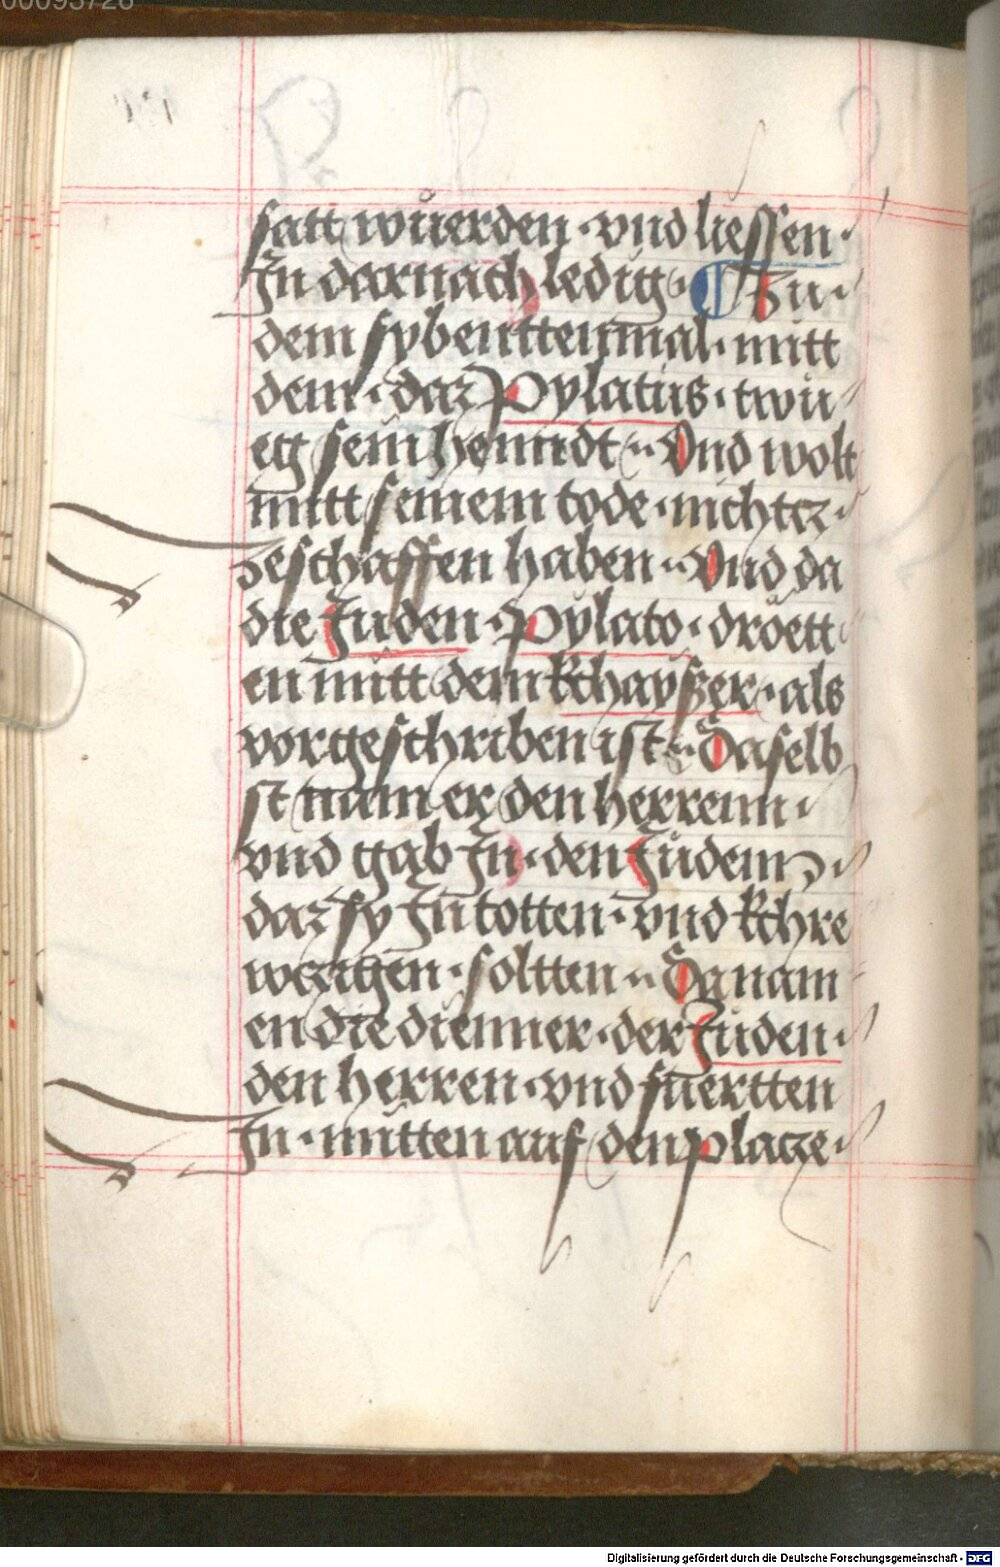 00093726
satt wuerden · vnd liessen ·
Jn darnach ledig · Zu ·
dem sybenttenmal · mitt
dem · daz Pylatus · twu
eg sein henndt · Vnd wolt
mitt seinem tode · nichtz ·
zeschaffen haben · Vnd da
die Juden · Pylato · droett
en mitt dem kchayszer · als
vorgeschriben ist · Daselb
st nam er den herrenn ·
vnd gab Jn · den Juden
daz sy Jn totten · vnd kchre
wczigen · soltten · Da nam
en die dienner · der Juden ·
den herren · vnd fuertten
Jn · mitten auf den placze ·
Digitalisierung gefördert durch die Deutsche Forschungsgemeinschaft - DFG